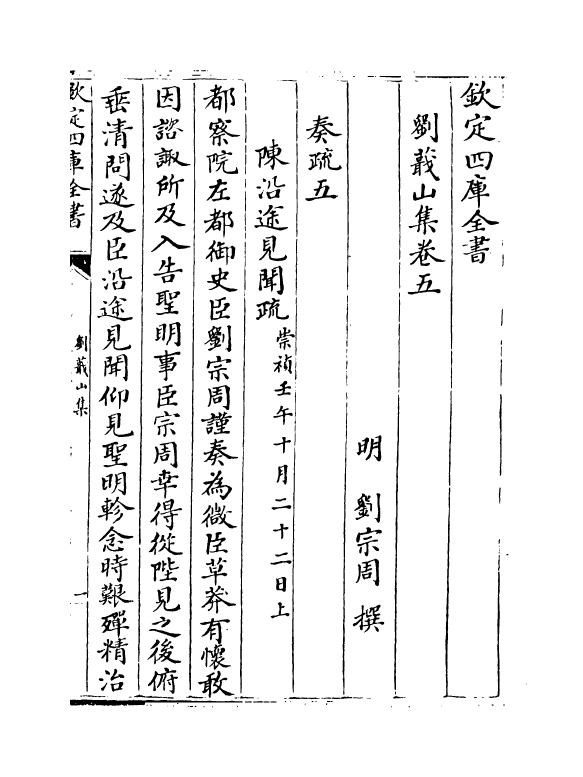 欽定四庫全書
劉蕺山集卷五
明 劉宗周 撰
奏疏五
陳沿途見聞疏 崇禎壬午十月二十二日上
都察院左都御史臣劉宗周謹奏為微臣草莽有懷敢
因諮諏所及入告聖明事臣宗周幸得從陛見之後俯
垂清問遂及臣沿途見聞仰見聖明軫念時艱殫精治
欽定四庫全書
劉蕺山集
一